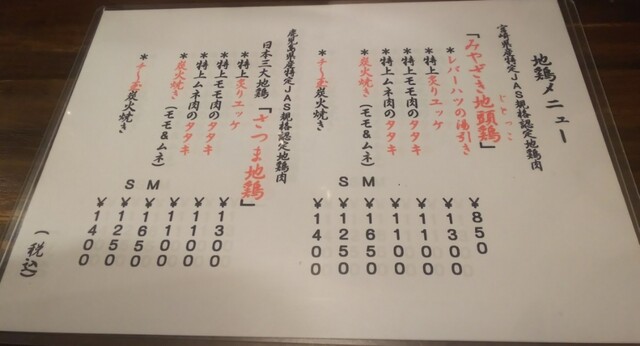 地鶏メニュー
宮崎県産特定JAS規格認定地鶏肉
じとっこ
「みやざき地頭鶏」
*レバーハツの湯引き ¥850
*特上炙りユッケ ¥1300
*特上モモ肉のタタキ ¥1100
*特上ムネ肉のタタキ ¥1100
*炭火焼き(モモ&ムネ) M ¥1650
S ¥1250
*チーズ炭火焼き ¥1400
鹿児島県産特定JAS規格認定地鶏肉
日本三大地鶏「さつま地鶏」
*特上炙りユッケ ¥1300
*特上モモ肉のタタキ ¥1100
*特上ムネ肉のタタキ ¥1100
*炭火焼き(モモ&ムネ) M ¥1650
S ¥1250
*チーズ炭火焼き ¥1400
(税込)